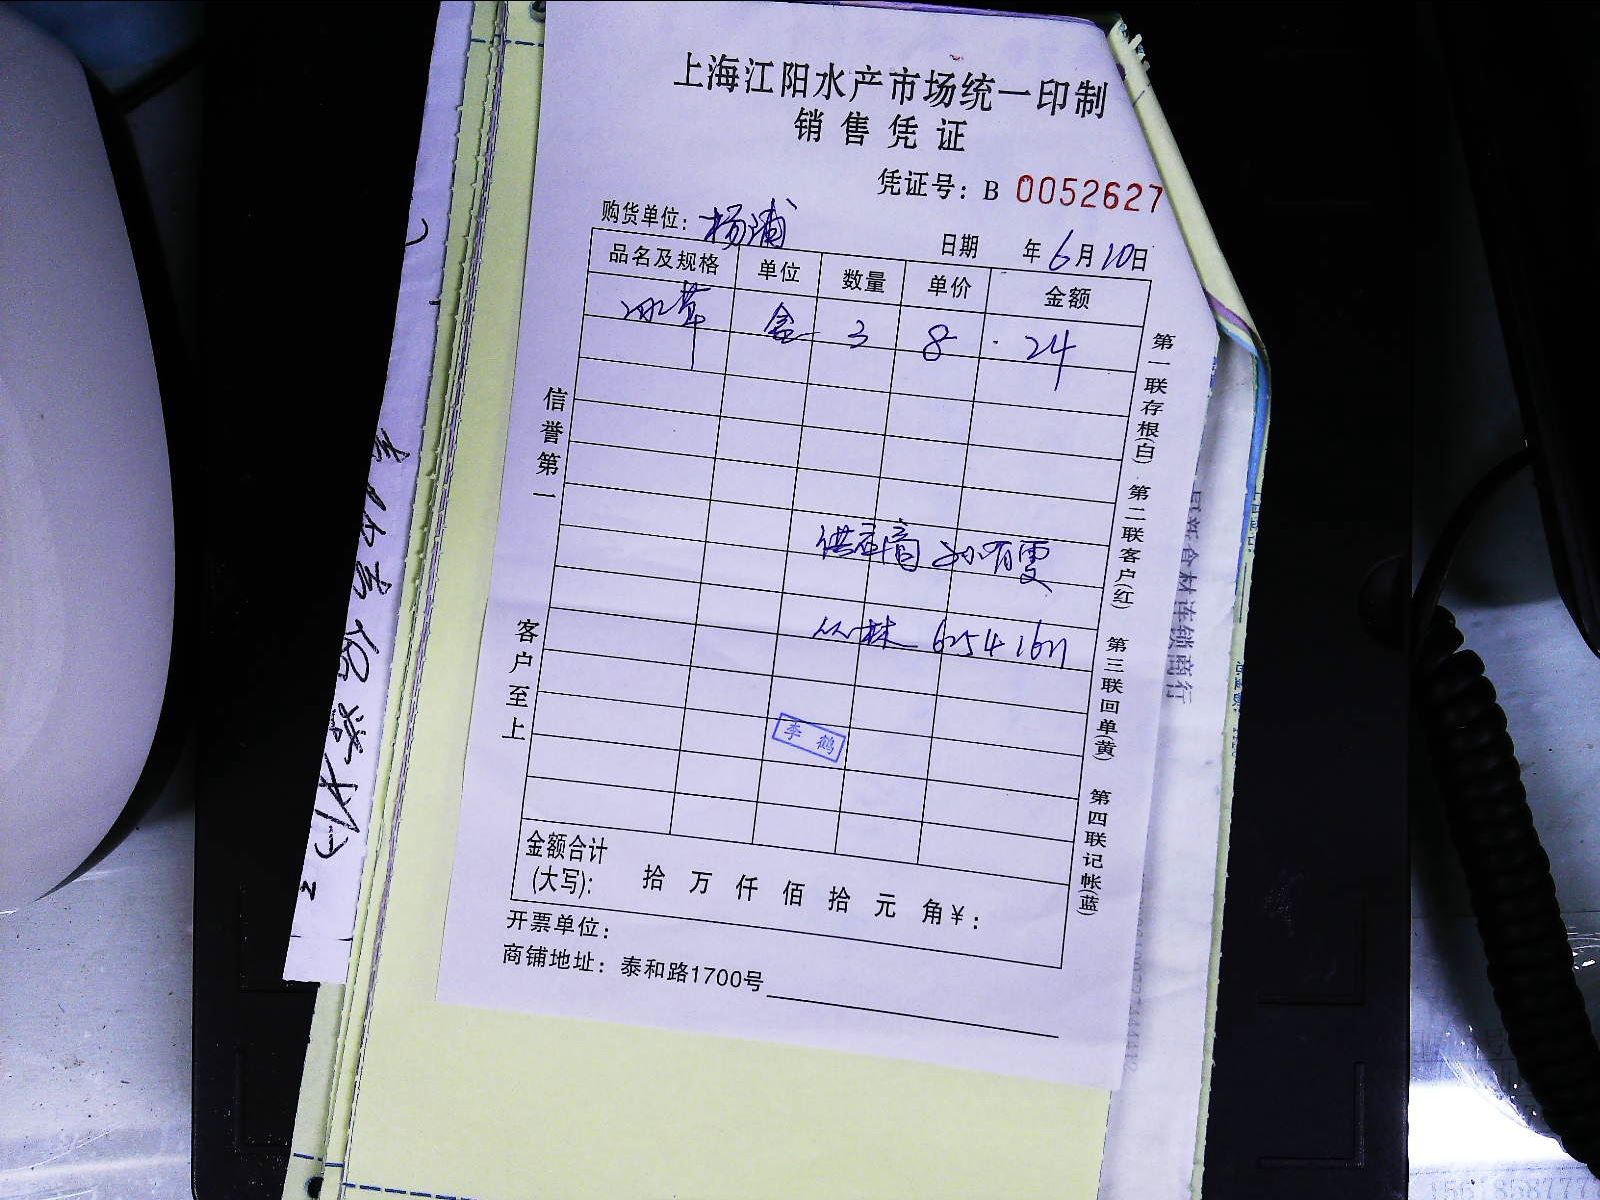 上海江阳水产市场统一印制
销售凭证
凭证号：B 0052627
购货单位：杨浦 日期 年6月10日
品名及规格 单位 数量 单价 金额
冰草 盒 3 8 24
供应商
丛林
李鹤
信誉第一
客户至上
第一联存根(白) 第二联客户(红) 第三联回单(黄) 第四联记帐(蓝)
金额合计
(大写)： 拾 万 仟 佰 拾 元 角￥：
开票单位：
商铺地址：泰和路1700号
食材连锁商行